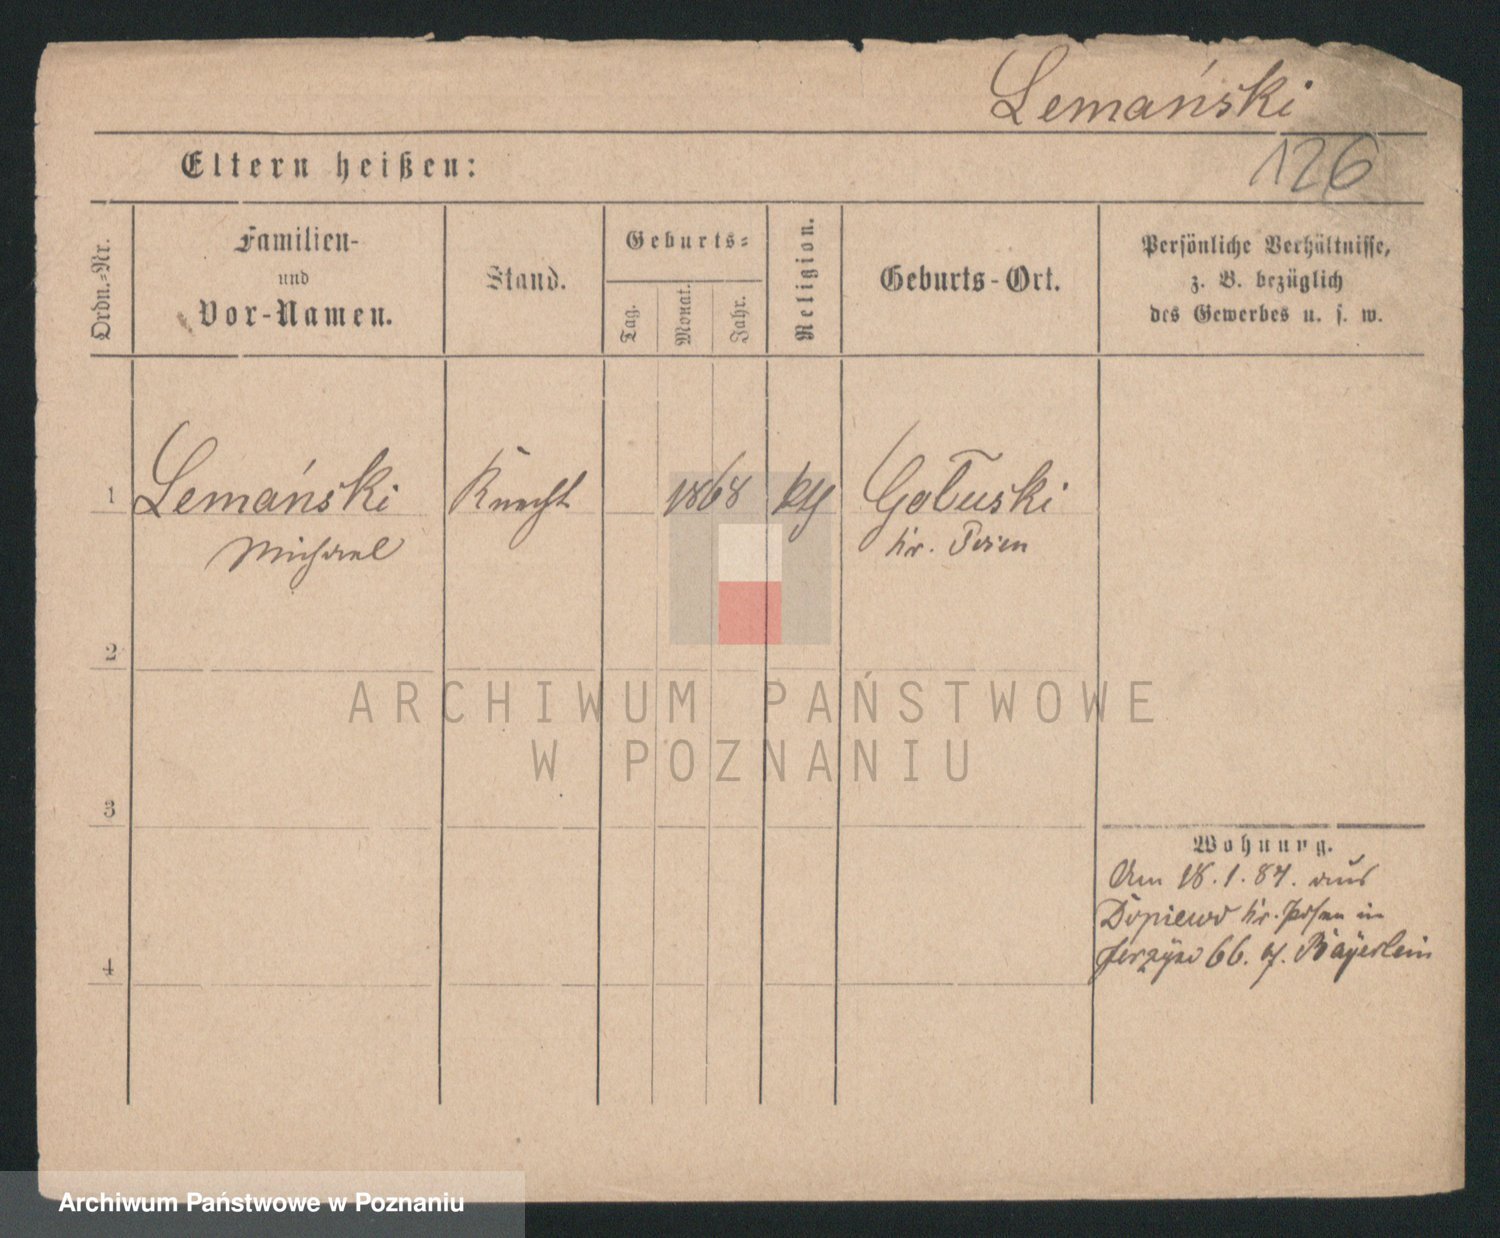 Lemański
126
Eltern heißen:
Ordn.-Nr.
Familien-
und
Vor-Namen.
Stand.
Geburts-
Tag.
Monat.
Jahr.
Religion.
Geburts-Ort.
Persönliche Verhältnisse,
z. B. bezüglich
des Gewerbes u. s. w.
1
Lemański
Michael
Knecht
1868
kth
Gołuski
Kr. Posen
2
ARCHIWUM PAŃSTWOWE
W POZNANIU
3
Wohnung.
Am 18. 1. 87. aus
Dopiewo Kr. Posen in
4
Jerzyce 66. b/. Bayerlein
Archiwum Państwowe w Poznaniu